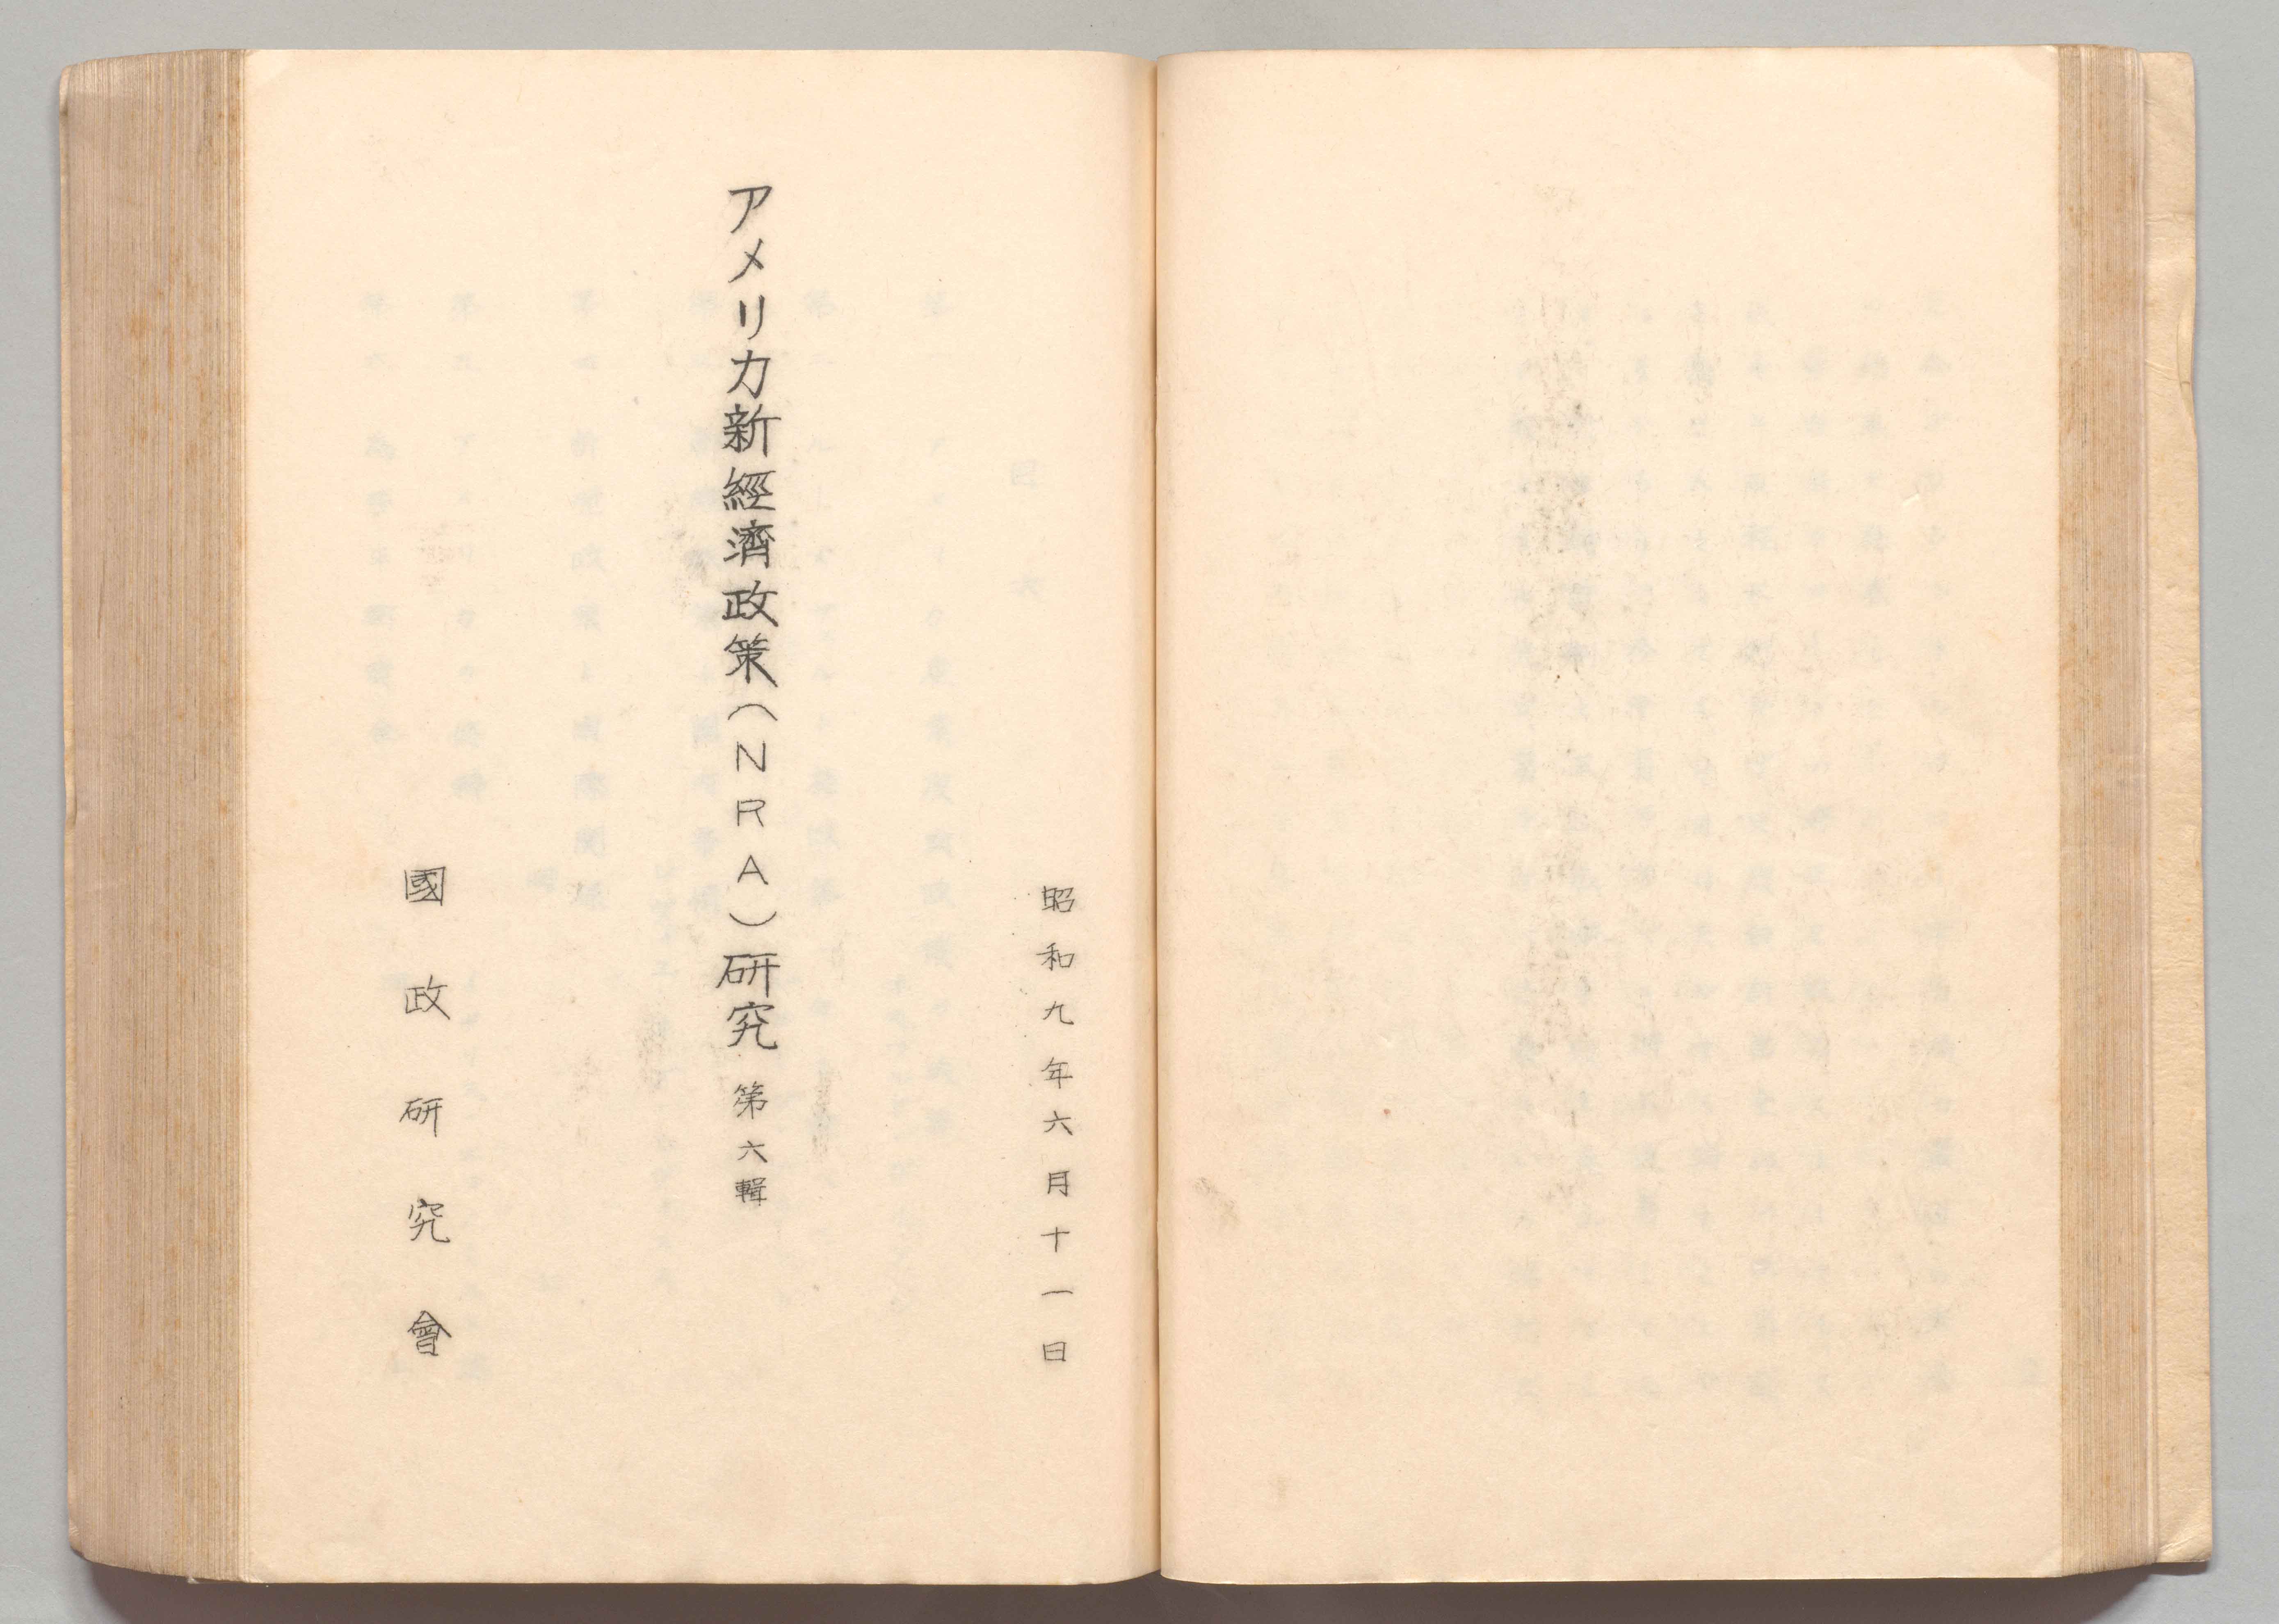 昭和九年六月十一日
アメリカ新經濟政策(NRA)研究 第六輯
國政研究會